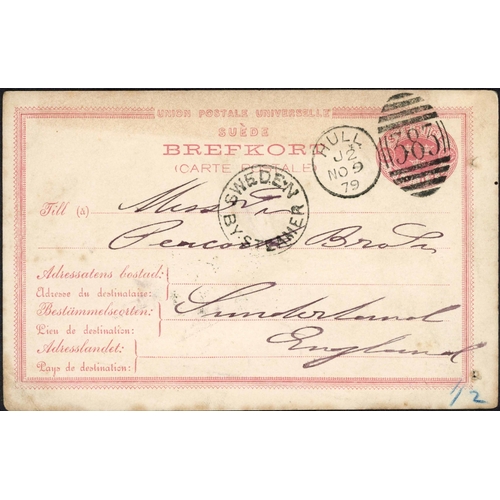 UNION POSTALE UNIVERSELLE
SUÈDE
BREFKORT
(CARTE POSTALE)
HULL
J2
NO 9
79
383
SWEDEN
BY STEAMER
Till (À)
Bro &
Sunderland
England
Adressatens bostad:
Adresse du destinataire:
Bestämmelseorten:
Lieu de destination:
Adresslandet:
Pays de destination:
1/2